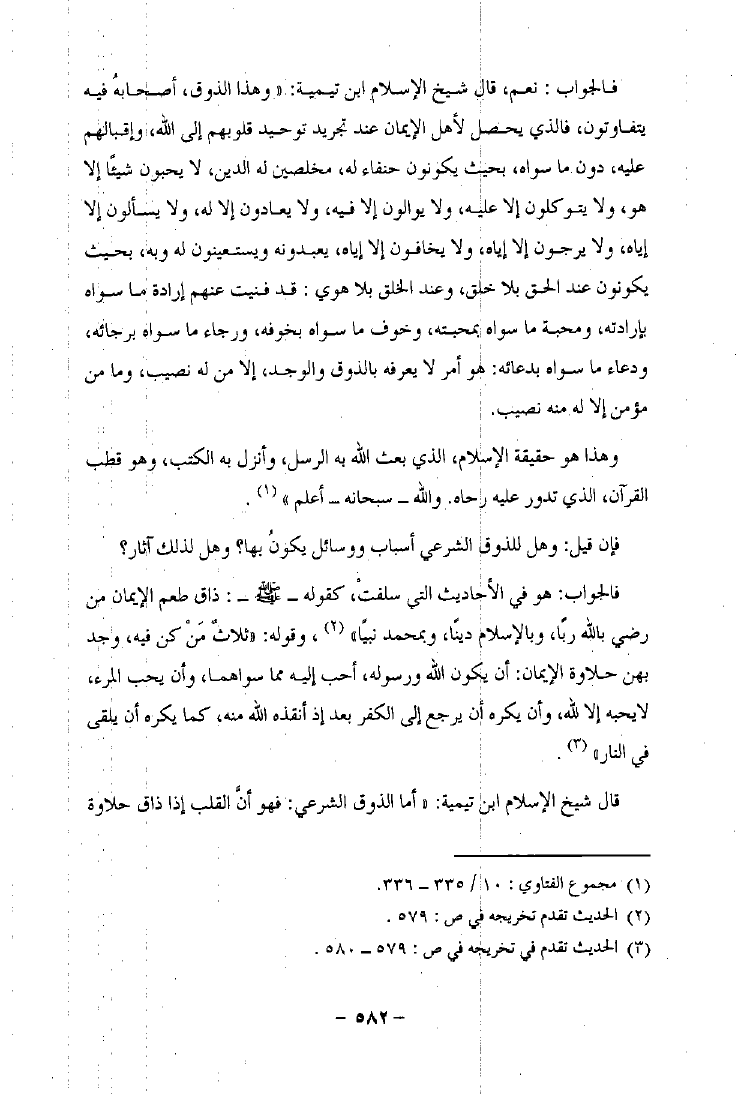 فالجواب : نعم، قال شيخ الإسلام ابن تيمية: « وهذا الذوق، أصحابهُ فيه
يتفاوتون، فالذي يحصل لأهل الإيمان عند تجريد توحيد قلوبهم إلى الله، وإقبالهم
عليه، دون ما سواه، بحيث يكونون حنفاء له، مخلصين له الدين، لا يحبون شيئًا إلا
هو، ولا يتوكلون إلا عليه، ولا يوالون إلا فيه، ولا يعادون إلا له، ولا يسألون إلا
إياه، ولا يرجون إلا إياه، ولا يخافون إلا إياه، يعبدونه ويستعينون له وبه، بحيث
يكونون عند الحق بلا خلق، وعند الخلق بلا هوي : قد فنيت عنهم إرادة ما سواه
بإرادته، ومحبة ما سواه بمحبته، وخوف ما سواه بخوفه، ورجاء ما سواه برجائه،
ودعاء ما سواه بدعائه: هو أمر لا يعرفه بالذوق والوجد، إلا من له نصيب، وما من
مؤمن إلا له منه نصيب.
وهذا هو حقيقة الإسلام، الذي بعث الله به الرسل، وأنزل به الكتب، وهو قطب
القرآن، الذي تدور عليه رحاه. والله ــ سبحانه ــ أعلم » (١) .
فإن قيل: وهل للذوق الشرعي أسباب ووسائل يكونُ بها؟ وهل لذلك آثار؟
فالجواب: هو في الأحاديث التي سلفتْ، كقوله ــ ﷺ ــ : ذاق طعم الإيمان من
رضي بالله ربًا، وبالإسلام دينًا، وبمحمد نبيًا» (٢) ، وقوله: «ثلاثٌ مَنْ كن فيه، وجد
بهن حلاوة الإيمان: أن يكون الله ورسوله، أحب إليه مما سواهما، وأن يحب المرء،
لايحبه إلا لله، وأن يكره أن يرجع إلى الكفر بعد إذ أنقذه الله منه، كما يكره أن يلقى
في النار» (٣) .
قال شيخ الإسلام ابن تيمية: « أما الذوق الشرعي: فهو أنَّ القلب إذا ذاق حلاوة
(١) مجموع الفتاوي : ١٠ / ٣٣٥ ــ ٣٣٦.
(٢) الحديث تقدم تخريجه في ص : ٥٧٩ .
(٣) الحديث تقدم في تخريجه في ص : ٥٧٩ ــ ٥٨٠ .
– ٥٨٢ –